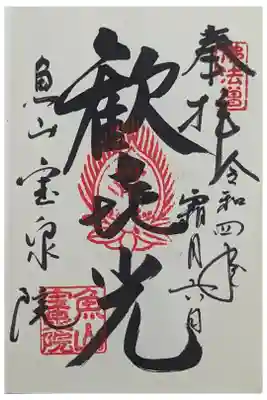 奉拝
佛法僧
令和四年
霜月六日
歓喜光
魚山宝泉院
魚山
宝泉院